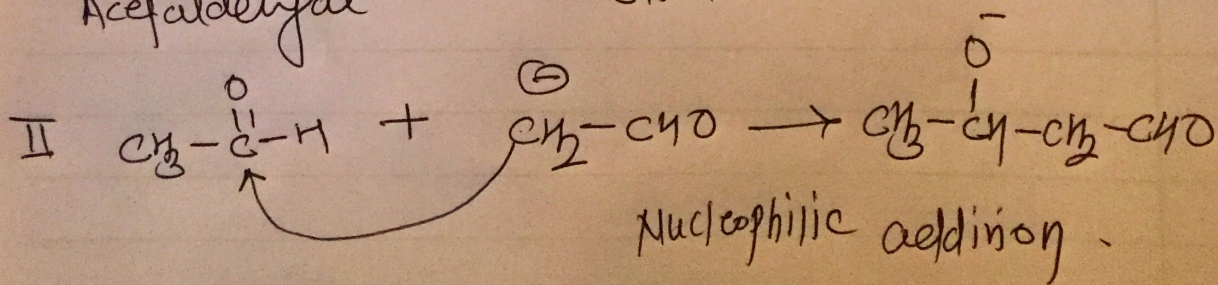 Acetaldehyde
O⁻
O ⊖ |
II CH₃-C-H + CH₂-CHO → CH₃-CH-CH₂-CHO
Nucleophilic addition.